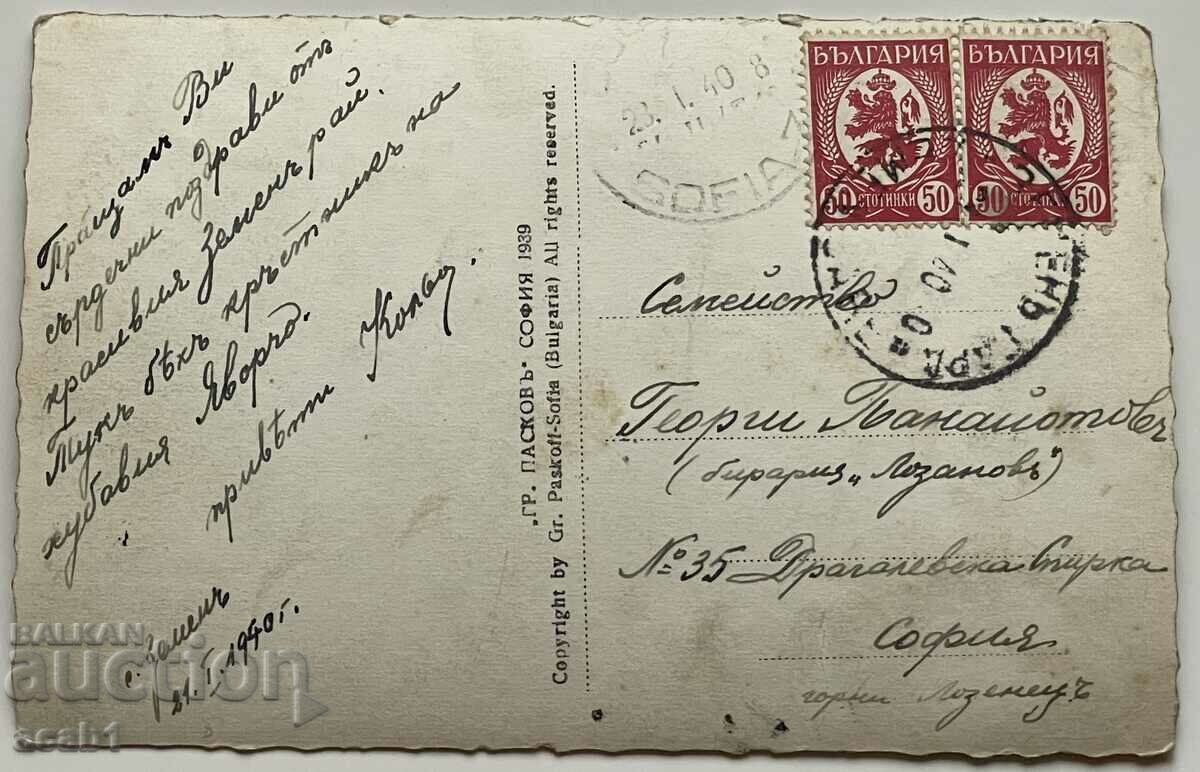 Пращамъ Ви
сърдечни поздрави отъ
красивия Земенъ рай.
Тукъ бѣхъ кръстникъ на
хубавия Яворчо.
привѣти
с. Земенъ
21. I. 1940 г.
"ГР. ПАСКОВЪ" СОФИЯ 1939
Copyright by Gr. Paskoff-Sofia (Bulgaria) All rights reserved.
23. I. 40 8
SOFIA
БЪЛГАРИЯ
50 СТОТИНКИ 50
БЪЛГАРИЯ
50 СТОТИНКИ 50
Семейство
Георги Панайотовъ
(бирария „Лозановъ")
№ 35 Драгалевска Спирка
София
горни Лозенецъ
BALKAN
auction
acab1